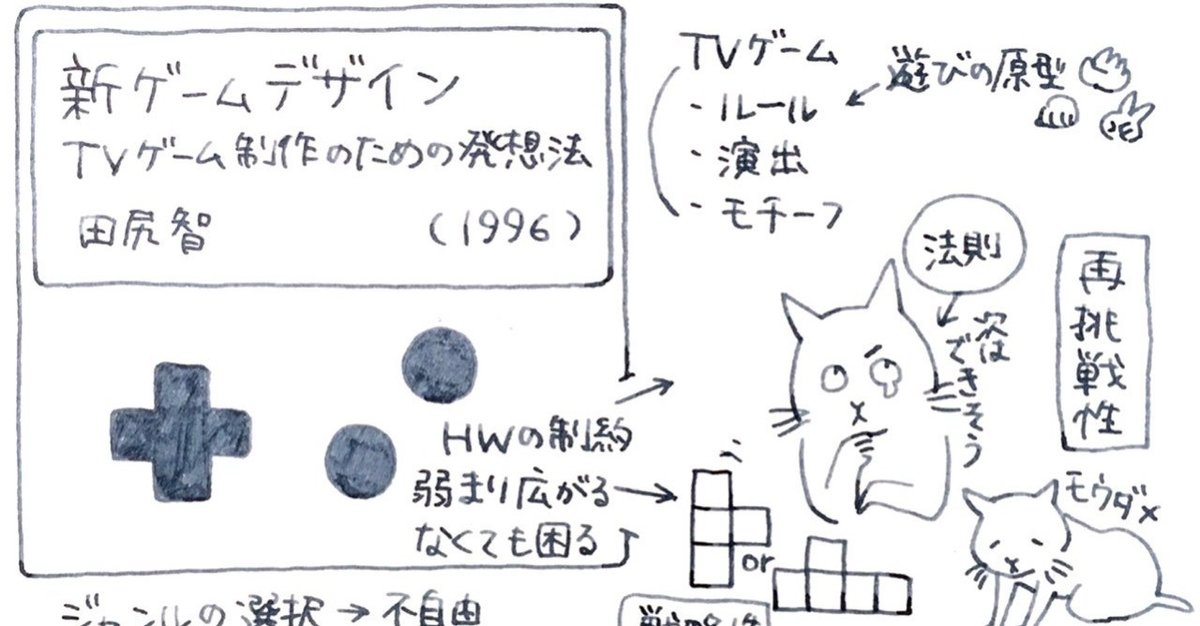 新ゲームデザイン
TVゲーム制作のための発想法
田尻智 (1996)
HWの制約
弱まり広がる
なくても困る
ジャンルの選択→不自由
TVゲーム
・ルール
・演出
・モチーフ
遊びの原型
法則
次は
できそう
再挑戦性
モウダメ
or